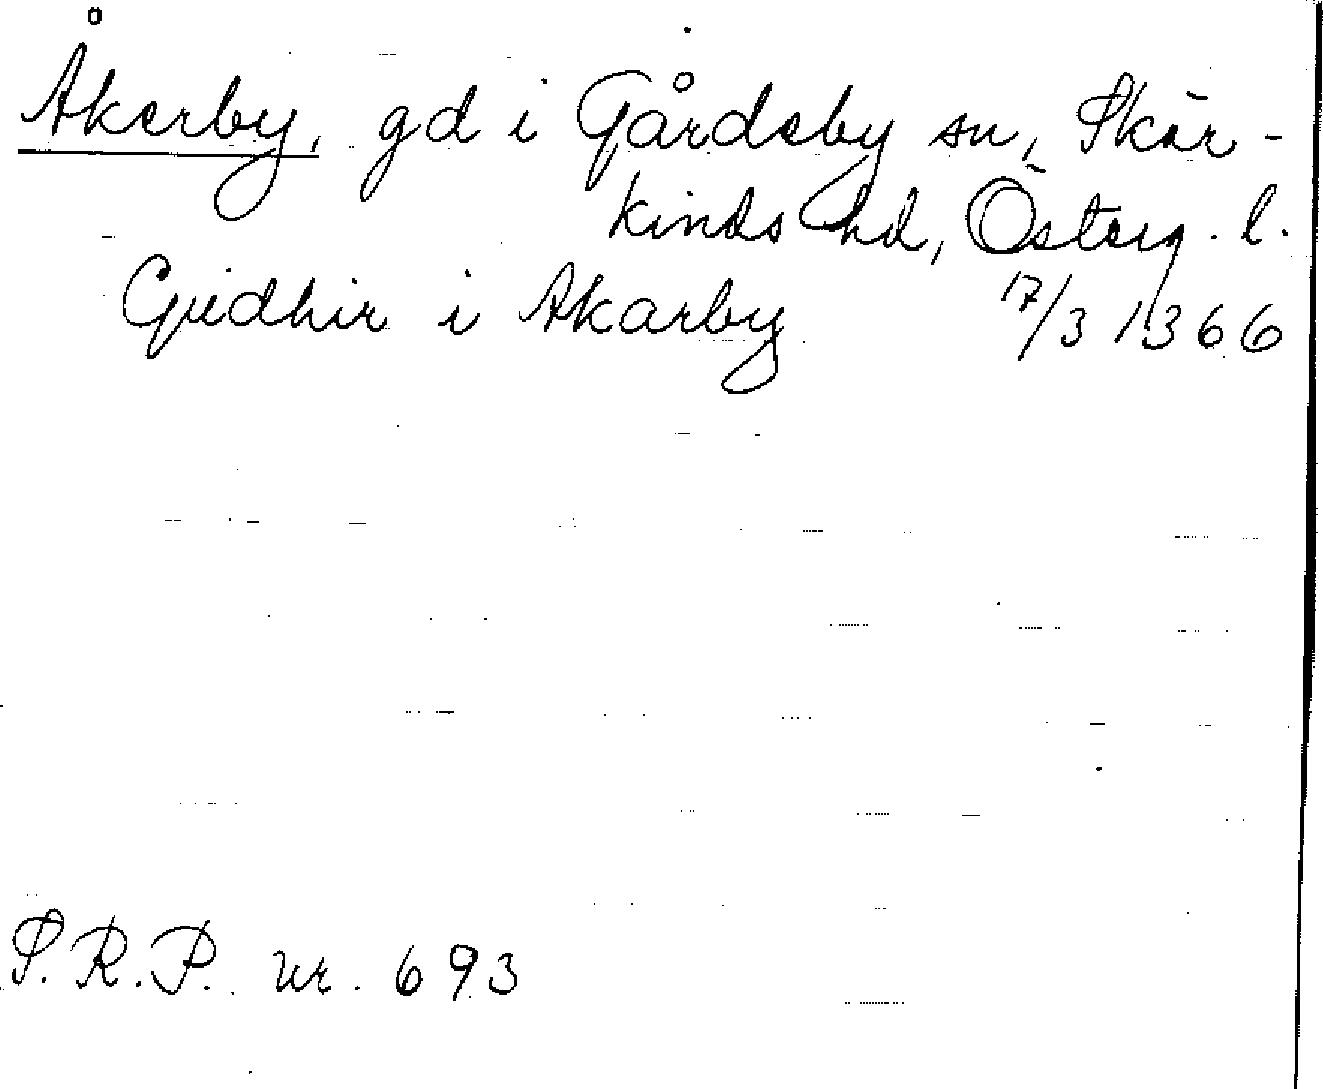 Åkerby, gd i Gårdeby sn, Skär-
kinds hd, Österg. l.
Gudhir i Akarby 17/3 1366
S.R.P. nr. 693